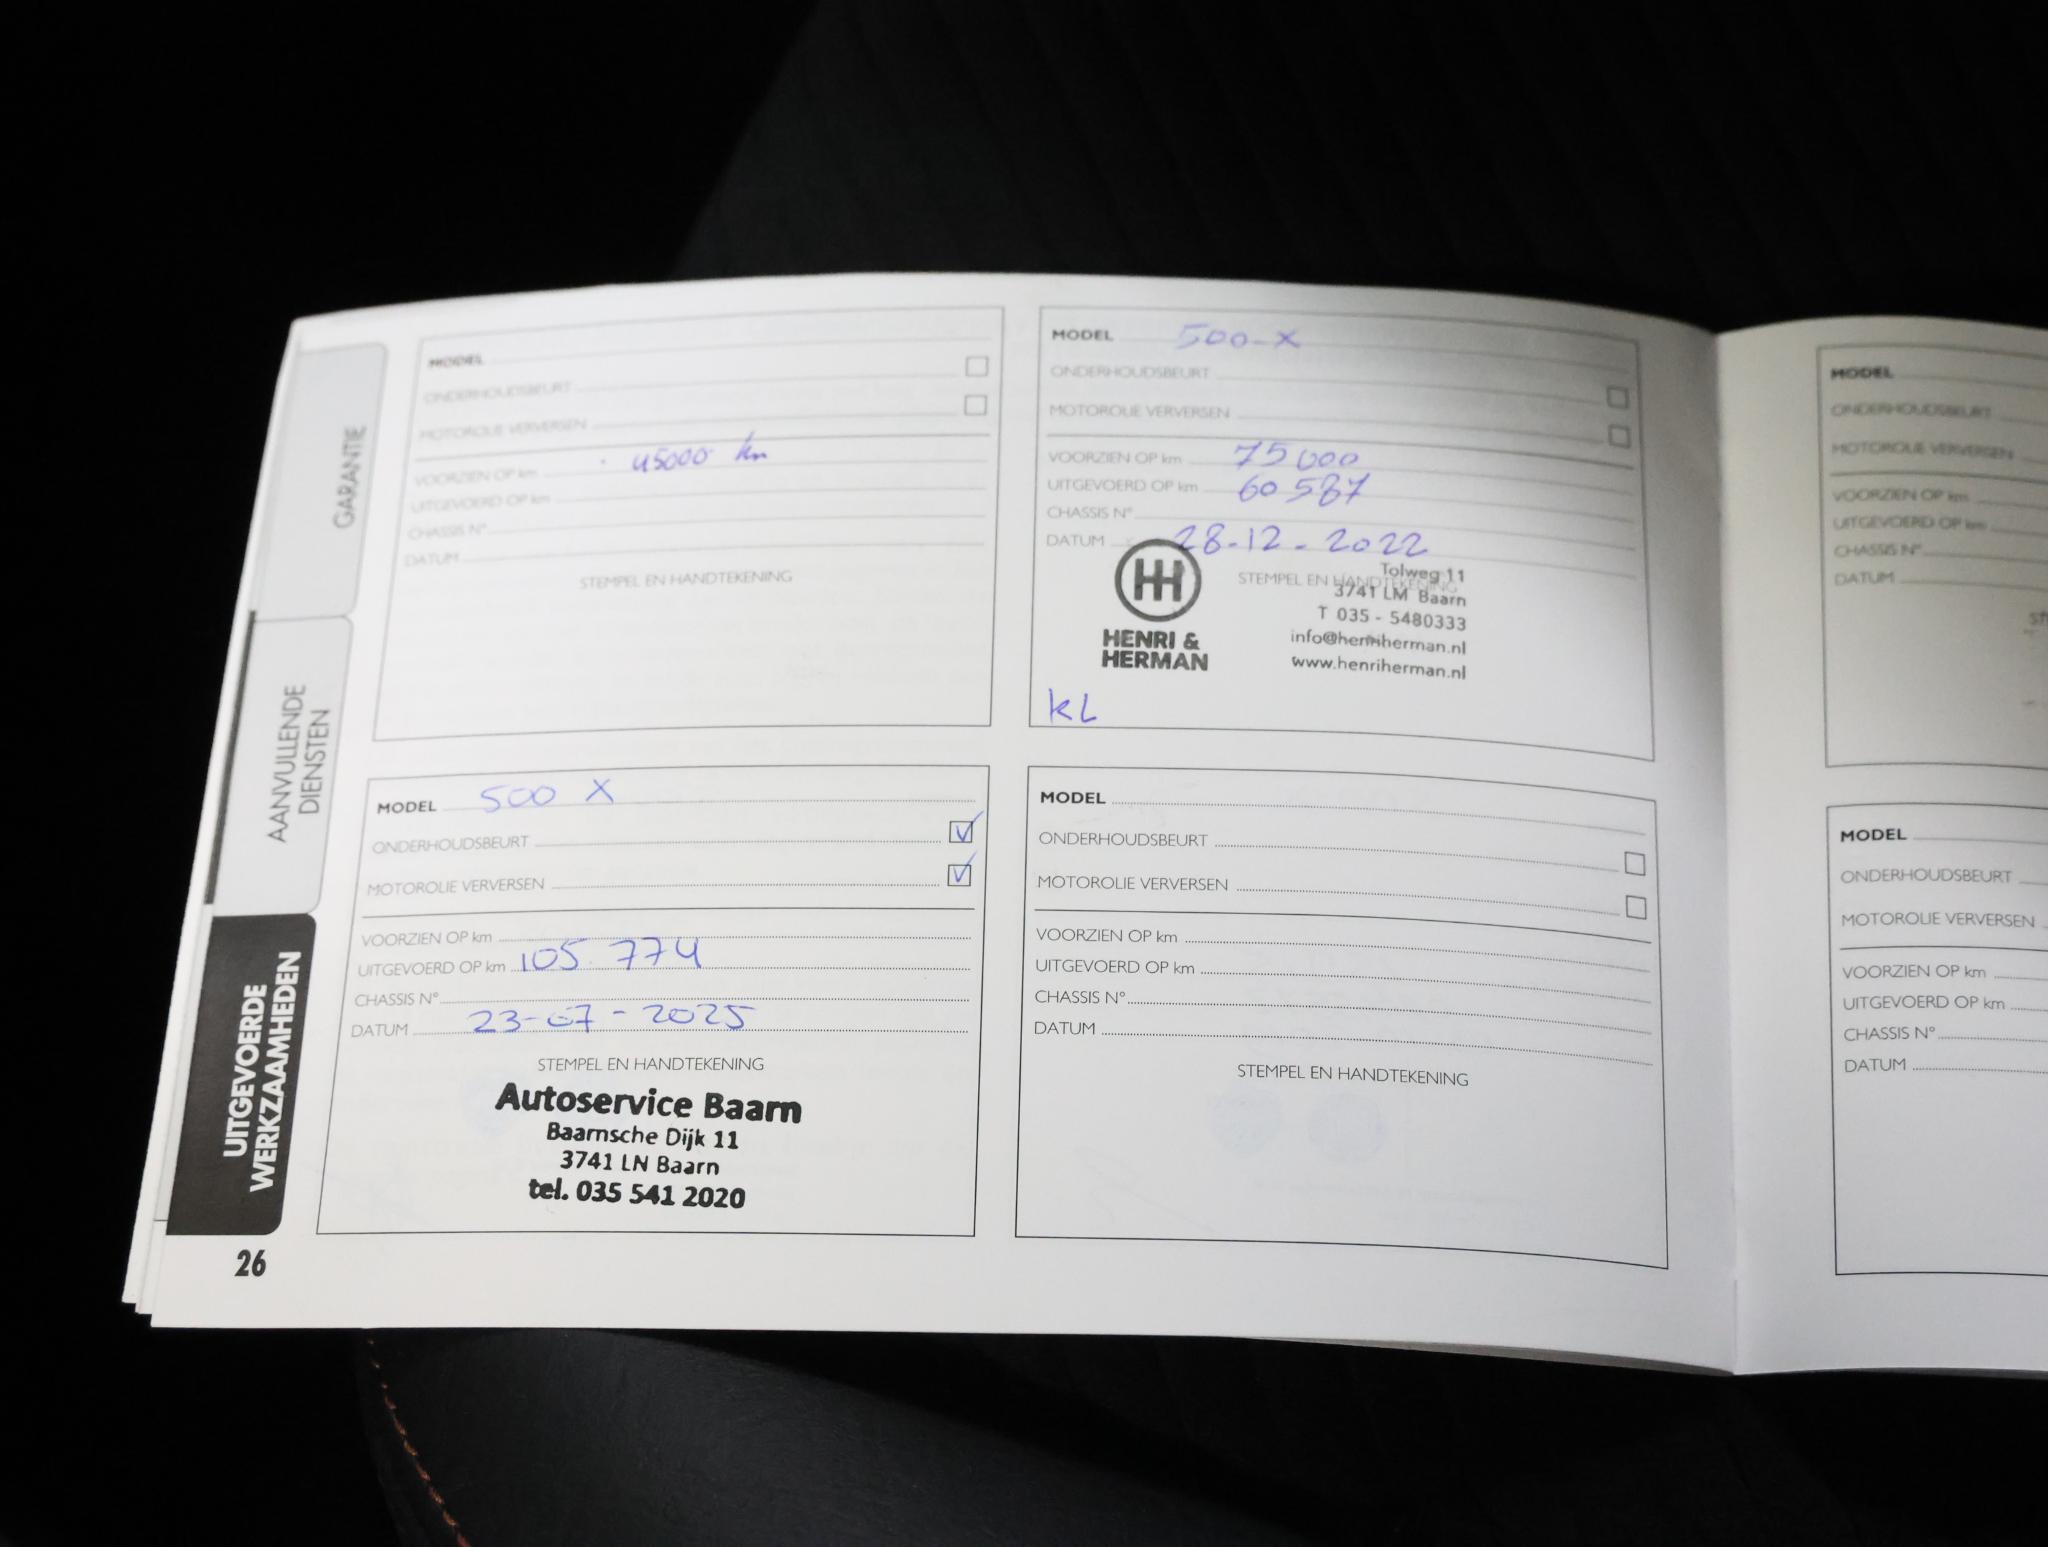 GARANTIE
AANVULLENDE
DIENSTEN
UITGEVOERDE
WERKZAAMHEDEN
26
MODEL
ONDERHOUDSBEURT
MOTOROLIE VERVERSEN
VOORZIEN OP km 45000 km
UITGEVOERD OP km
CHASSIS N°
DATUM
STEMPEL EN HANDTEKENING
MODEL 500-X
ONDERHOUDSBEURT
MOTOROLIE VERVERSEN
VOORZIEN OP km 75000
UITGEVOERD OP km 60587
CHASSIS N°
DATUM 28-12-2022
STEMPEL EN HANDTEKENING
HENRI &
HERMAN
Tolweg 11
3741 LM Baarn
T 035 - 5480333
info@henriherman.nl
www.henriherman.nl
KL
MODEL 500 X
ONDERHOUDSBEURT
MOTOROLIE VERVERSEN
VOORZIEN OP km
UITGEVOERD OP km 105.774
CHASSIS N°
DATUM 23-07-2025
STEMPEL EN HANDTEKENING
Autoservice Baarn
Baarnsche Dijk 11
3741 LN Baarn
tel. 035 541 2020
MODEL
ONDERHOUDSBEURT
MOTOROLIE VERVERSEN
VOORZIEN OP km
UITGEVOERD OP km
CHASSIS N°
DATUM
STEMPEL EN HANDTEKENING
MODEL
ONDERHOUDSBEURT
MOTOROLIE VERVERSEN
VOORZIEN OP km
UITGEVOERD OP km
CHASSIS N°
DATUM
MODEL
ONDERHOUDSBEURT
MOTOROLIE VERVERSEN
VOORZIEN OP km
UITGEVOERD OP km
CHASSIS N°
DATUM